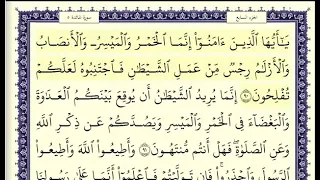 الجزء السابع سورة المائدة ٥
يَـٰٓأَيُّهَا ٱلَّذِينَ ءَامَنُوٓا۟ إِنَّمَا ٱلْخَمْرُ وَٱلْمَيْسِرُ وَٱلْأَنصَابُ
وَٱلْأَزْلَـٰمُ رِجْسٌ مِّنْ عَمَلِ ٱلشَّيْطَـٰنِ فَٱجْتَنِبُوهُ لَعَلَّكُمْ
تُفْلِحُونَ ٩٠ إِنَّمَا يُرِيدُ ٱلشَّيْطَـٰنُ أَن يُوقِعَ بَيْنَكُمُ ٱلْعَدَٰوَةَ
وَٱلْبَغْضَآءَ فِى ٱلْخَمْرِ وَٱلْمَيْسِرِ وَيَصُدَّكُمْ عَن ذِكْرِ ٱللَّهِ
وَعَنِ ٱلصَّلَوٰةِ فَهَلْ أَنتُم مُّنتَهُونَ ٩١ وَأَطِيعُوا۟ ٱللَّهَ وَأَطِيعُوا۟
ٱلرَّسُولَ وَٱحْذَرُوا۟ فَإِن تَوَلَّيْتُمْ فَٱعْلَمُوٓا۟ أَنَّمَا عَلَىٰ رَسُولِنَا